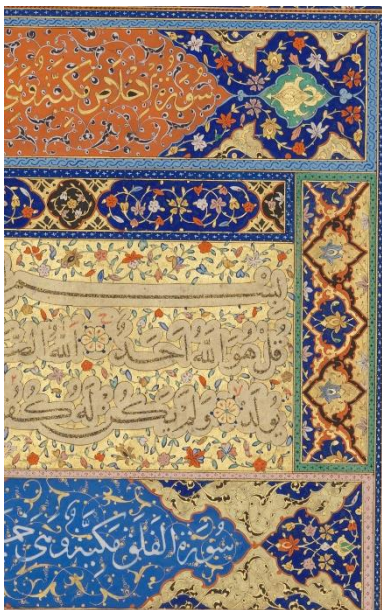 سُورَةُ الْإِخْلَاصِ مَكِّيَّةٌ وَهِيَ
بِسْمِ
قُلْ هُوَ اللَّهُ أَحَدٌ اللَّهُ
يُولَدْ وَلَمْ يَكُنْ لَهُ
سُورَةُ الْفَلَقِ مَكِّيَّةٌ وَهِيَ